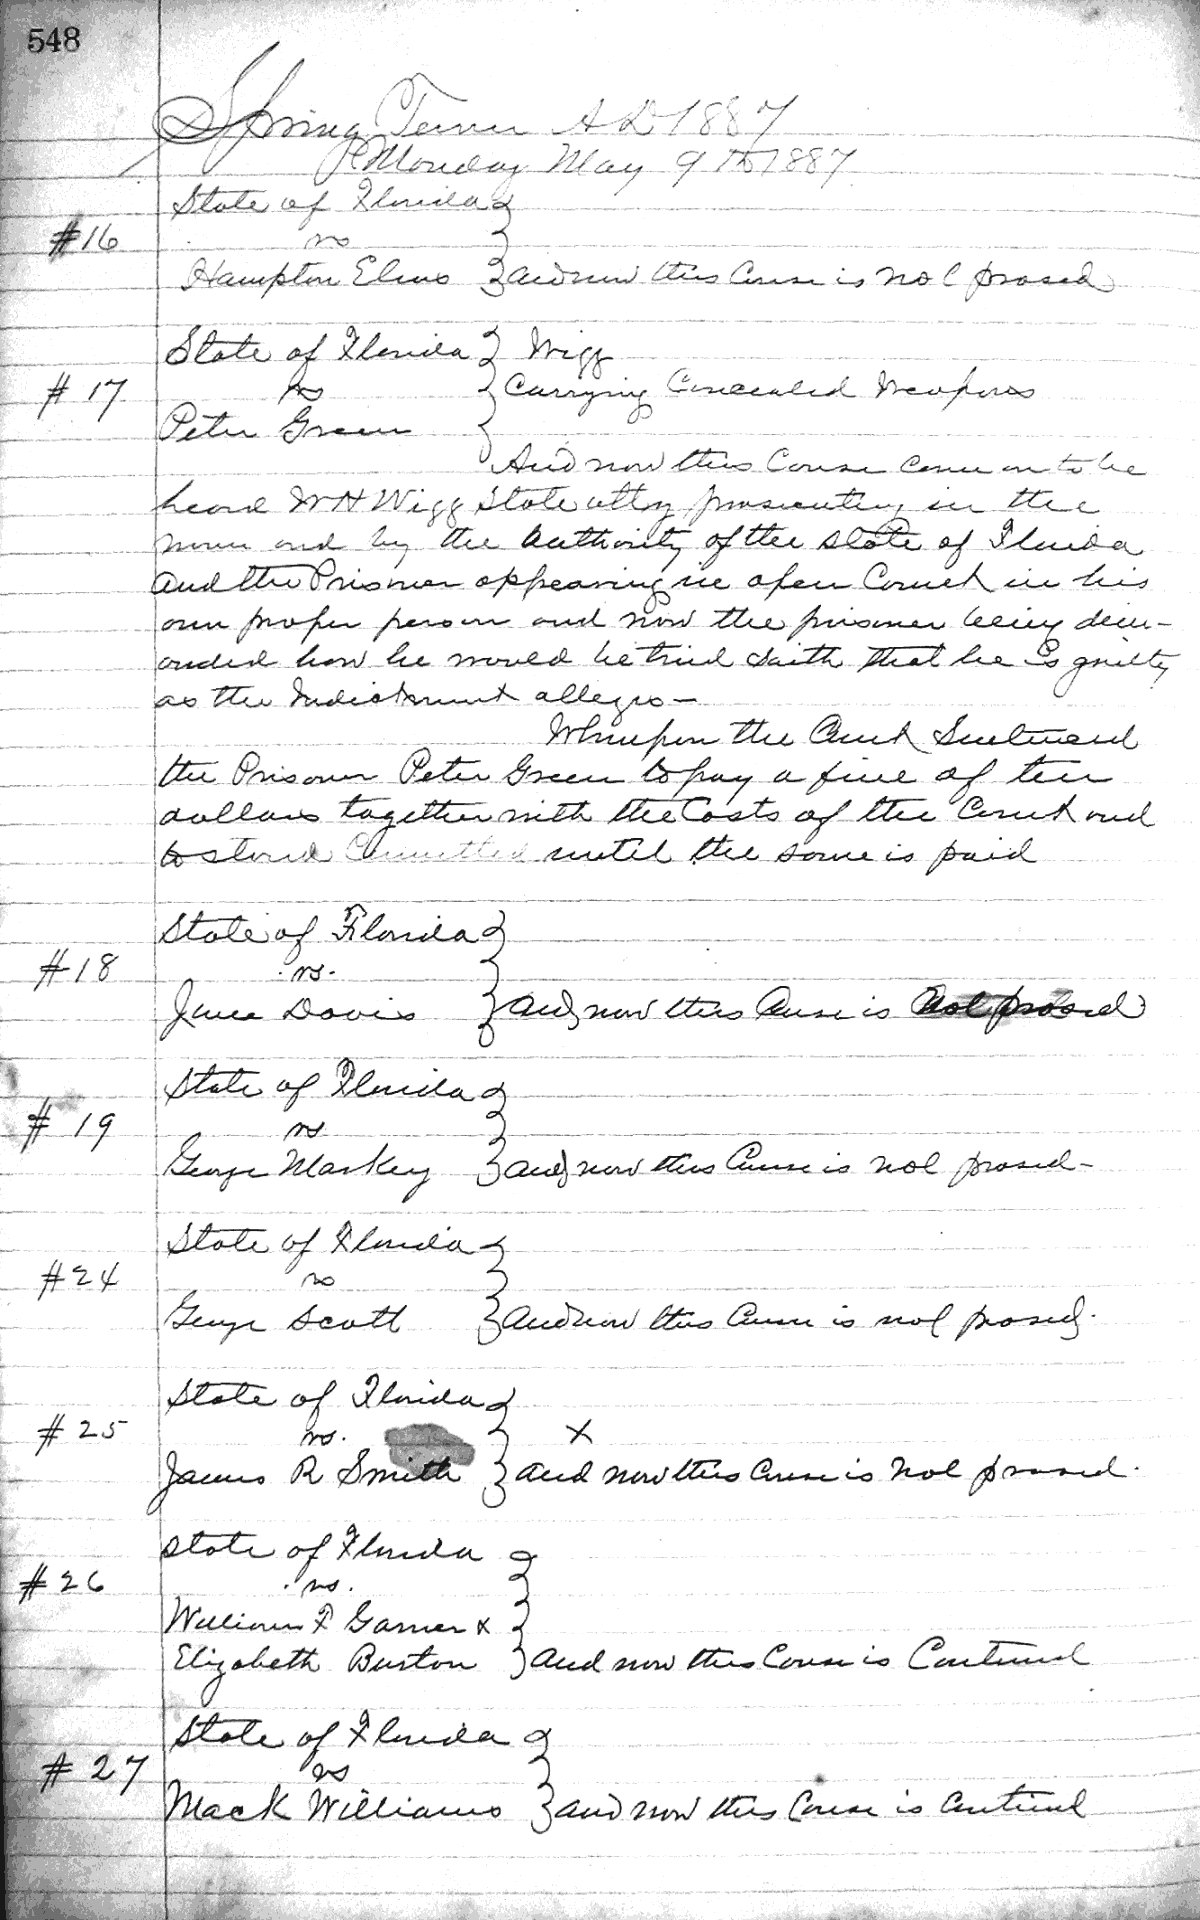 548
Spring Term AD 1887
Monday May 9th 1887
State of Florida
#16 vs
Hampton Elmo and now this Cause is nol prosed
State of Florida Wigg
#17 vs Carrying Concealed Weapons
Peter Green
And now this Cause came on to be
heard W H Wigg State atty prosecuting in the
name and by the authority of the state of Florida
and the Prisoner appearing in open Court in his
own proper person and now the prisoner being dem-
anded how he would be tried saith that he is guilty
as the Indictment alleges -
Whereupon the Court Sentenced
the Prisoner Peter Green to pay a fine of ten
dollars together with the Costs of the Court and
to stand Committed until the same is paid
State of Florida
#18 vs.
Davis and now this Cause is nol prosed
State of Florida
#19 vs
George Markey and now this Cause is nol prosed -
State of Florida
#24 vs
George Scott and now this Cause is nol prosed.
State of Florida
#25 vs. X
James R Smith and now this Cause is nol prosed.
State of Florida
#26 vs.
William F Garner x
Elizabeth Burton and now this Cause is Continued
State of Florida
#27 vs
Mack Williams and now this Cause is continued